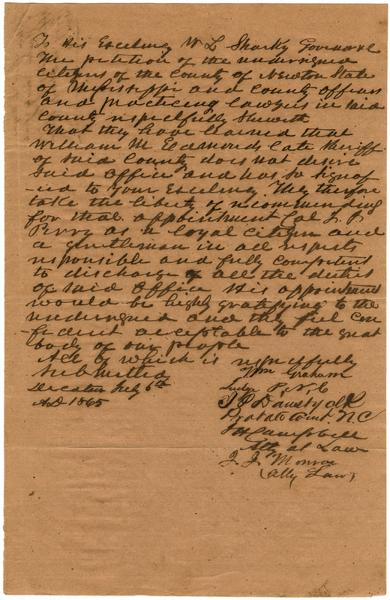 To His Excelency W L Sharky Governor &c
The petition of the undersigned
citizens of the County of Newton State
of Mississippi and County officers
and practicing Lawyers in said
County respectfully sheweth
That they have learned that
William M. Edmonds late Sheriff
of said County does not desire
said office and has so signif
-ied to your Excelency. They therefore
take the liberty of recommending
for that appointment Col
Perry as a loyal citizen and
a gentleman in all respects
responsible and fully competent
to discharge all the duties
of said office His appointment
would be highly gratifying to the
undersigned and they feel con
-fident acceptable to the great
body of our people
All of which is respectfully
submitted
Decatur July 6th
AD 1865
Wm Graham
Judge P. N. C
Probate Court N.C
Campbell
Atty at Law
J. J. Monroe
(Atty Law)